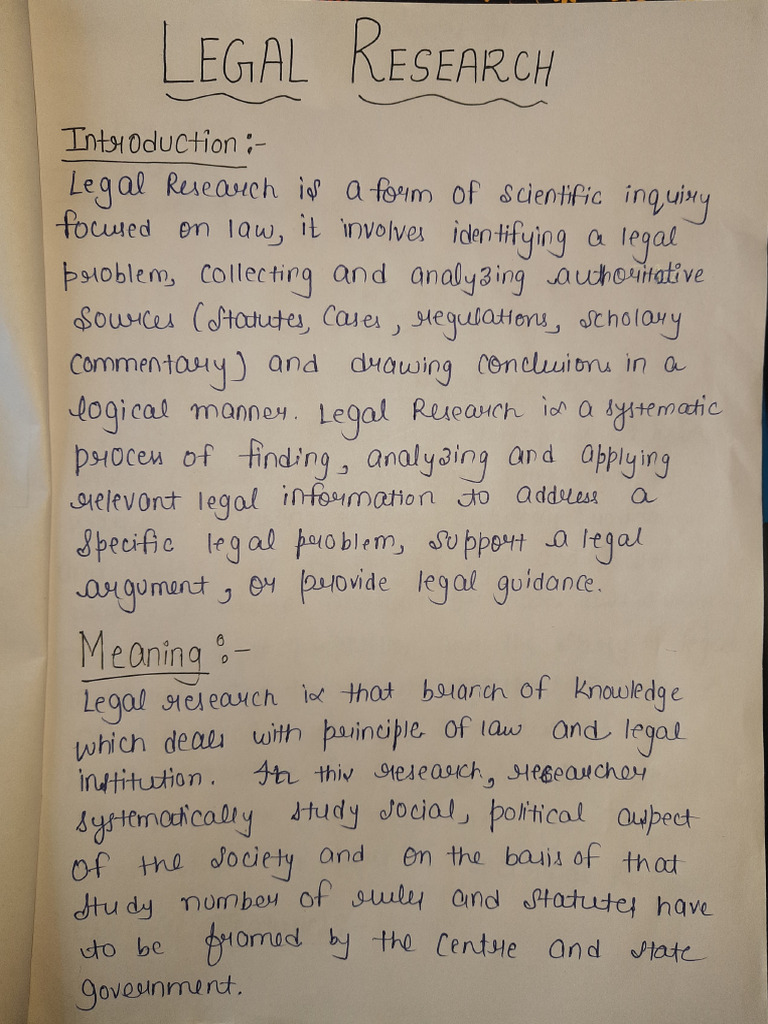 LEGAL RESEARCH
Introduction :-
Legal Research is a form of scientific inquiry
focused on law, it involves identifying a legal
problem, collecting and analyzing authoritative
sources (statutes, cases, regulations, scholary
commentary) and drawing conclusions in a
logical manner. Legal Research is a systematic
process of finding, analyzing and applying
relevant legal information to address a
specific legal problem, support a legal
argument, or provide legal guidance.
Meaning :-
Legal research is that branch of knowledge
which deals with principle of law and legal
institution. In this research, researcher
systematically study social, political aspect
of the society and on the basis of that
study number of rules and statutes have
to be framed by the Centre and state
government.